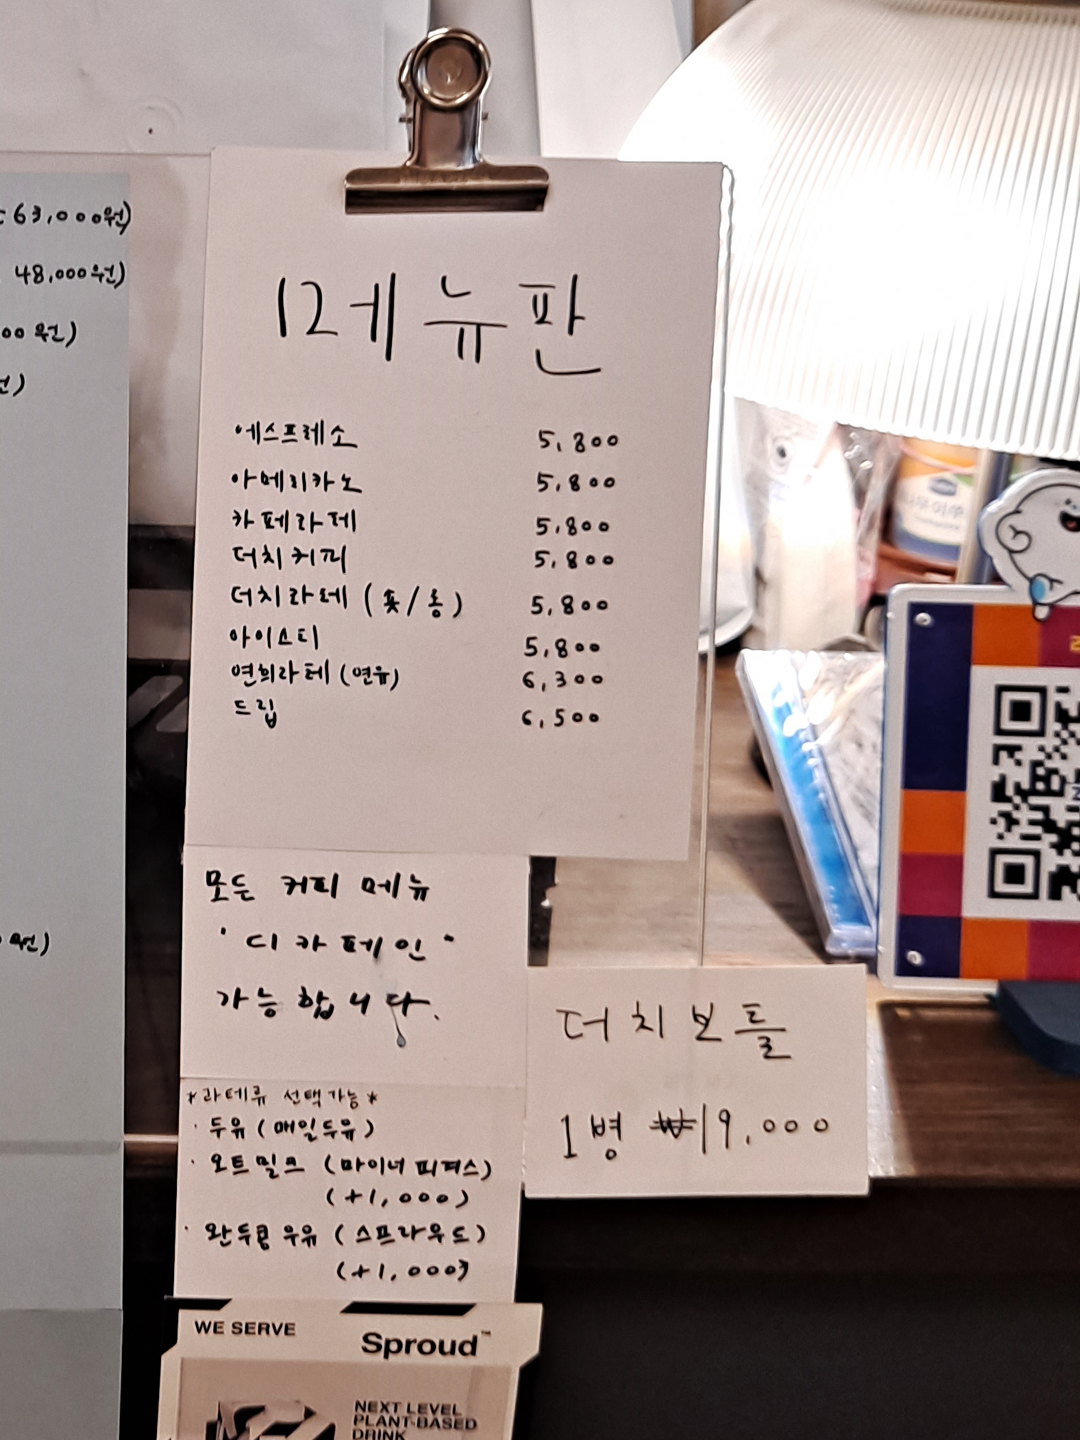 63,000원)
48,000원)
00원)
원)
원)
메뉴판
에스프레소 5,800
아메리카노 5,800
카페라떼 5,800
더치커피 5,800
더치라떼 (숏/롱) 5,800
아이스티 5,800
연희라떼 (연유) 6,300
드립 6,500
모든 커피 메뉴
"디카페인"
가능합니다.
*라떼류 선택가능*
· 두유 (매일두유)
· 오트밀크 (마이너피겨스)
(+1,000)
· 완두콩우유 (스프라우드)
(+1,000)
더치보틀
1병 ₩19,000
WE SERVE
Sproud™
NEXT LEVEL
PLANT-BASED
DRINK